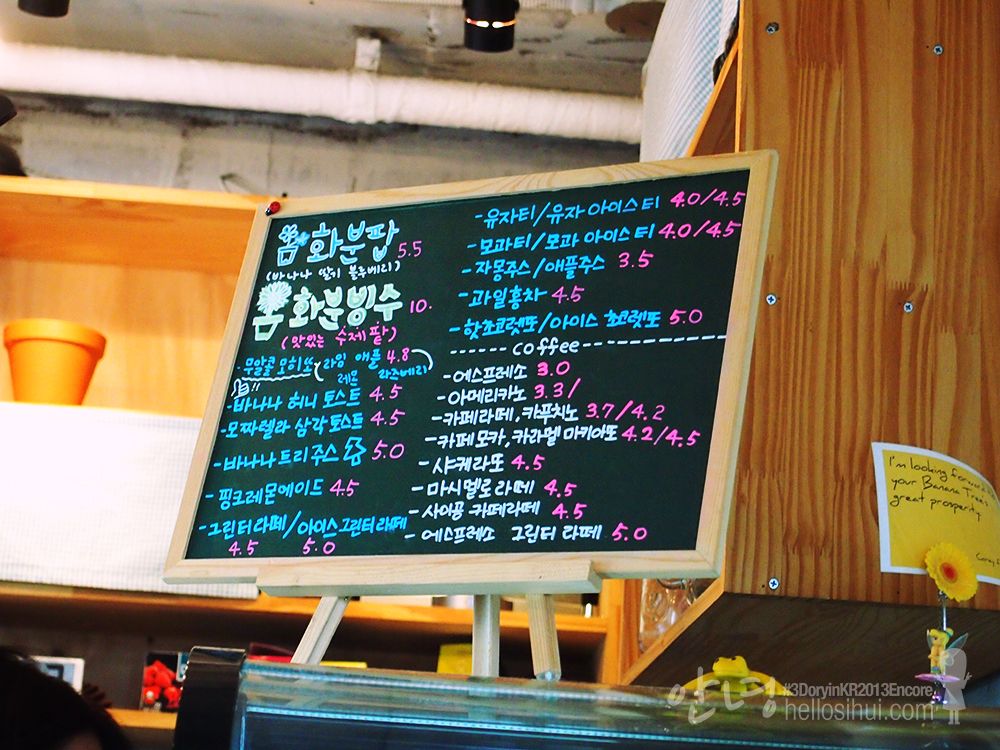 화분팝 5.5
(바나나 딸기 블루베리)
화분빙수 10.
(맛있는 수제 팥)
- 무알콜 모히또 (라임 애플 4.8
레몬 라즈베리)
- 바나나 허니 토스트 4.5
- 모짜렐라 삼각 토스트 4.5
- 바나나트리 주스 5.0
- 핑크레몬에이드 4.5
- 그린티라떼/아이스그린티라떼
4.5 5.0
- 유자티/유자 아이스티 4.0/4.5
- 모과티/모과 아이스티 4.0/4.5
- 자몽주스/애플주스 3.5
- 과일홍차 4.5
- 핫초코렛또/아이스 쵸코렛또 5.0
------ coffee ----------
- 에스프레소 3.0
- 아메리카노 3.3/
- 카페라떼, 카푸치노 3.7/4.2
- 카페모카, 카라멜 마키아또 4.2/4.5
- 샤케라또 4.5
- 마시멜로 라떼 4.5
- 사이공 카페라떼 4.5
- 에스프레소 그린티 라떼 5.0
I'm looking forward
your Banana Tree's
great prosperity
안녕 #3DoryinKR2013Encore
hellosihui.com